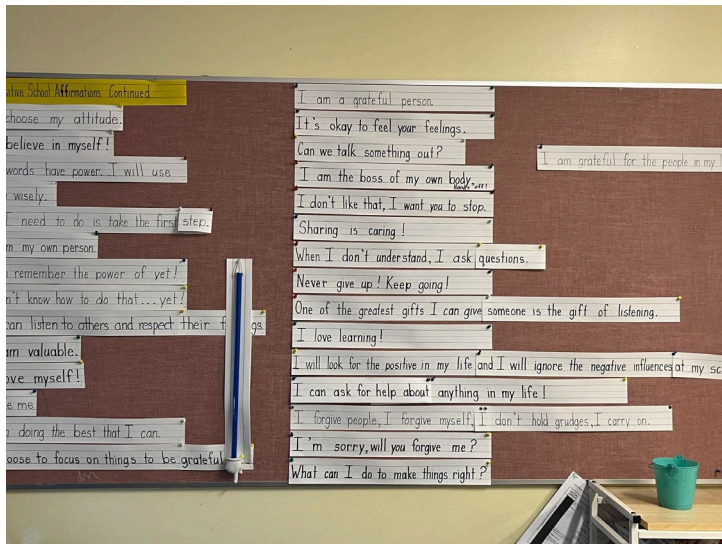 itive School Affirmations Continued
choose my attitude.
believe in myself!
words have power. I will use
wisely.
I need to do is take the first step.
m my own person.
remember the power of yet!
n't know how to do that...yet!
can listen to others and respect their f gs.
am valuable.
ove myself!
e me
doing the best that I can.
oose to focus on things to be grateful
I am a grateful person.
It's okay to feel your feelings.
Can we talk something out?
I am the boss of my own body.
Hands off!
I don't like that, I want you to stop.
Sharing is caring!
When I don't understand, I ask questions.
Never give up! Keep going!
One of the greatest gifts I can give someone is the gift of listening.
I love learning!
I will look for the positive in my life and I will ignore the negative influences at my sc
I can ask for help about anything in my life!
I forgive people, I forgive myself, I don't hold grudges, I carry on.
I'm sorry, will you forgive me?
What can I do to make things right?
I am grateful for the people in my